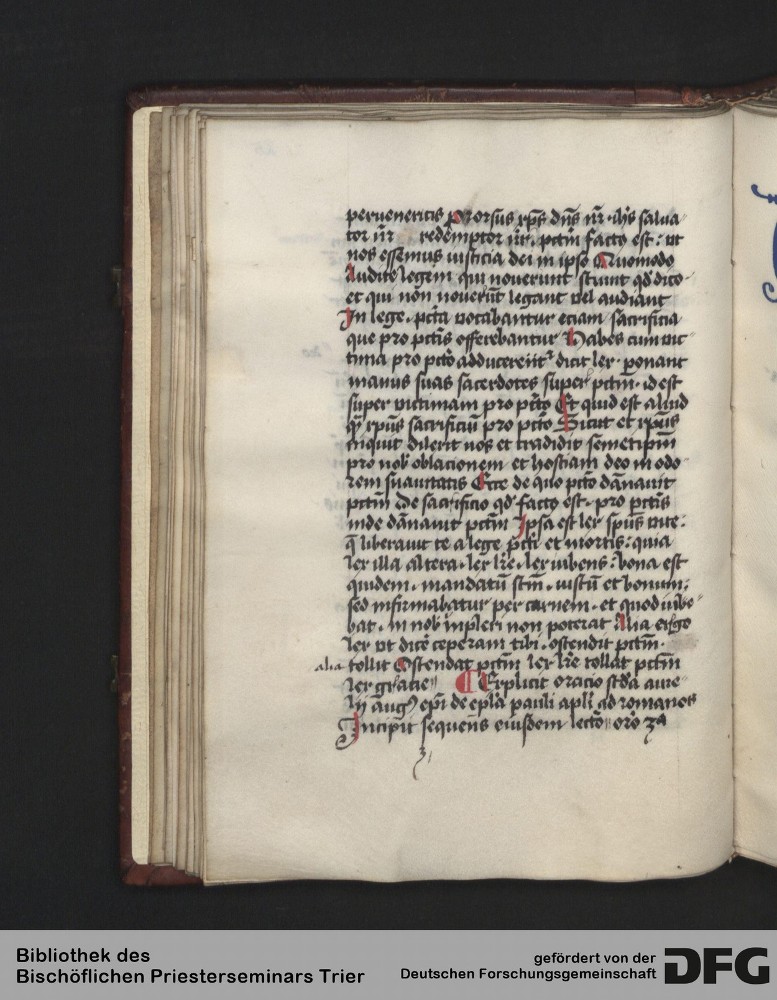 perueneritis prorsus xp̄s dn̄s nr̄ ih̄s salua
tor nr̄ redemptor nr̄. pctm̄ facto est: ut
nos essemus iusticia dei in ipso Quomodo
Audite legem qui nouerunt sciunt qd̄ dico
et qui non nouerūt legant vel audiant
In lege. pctā vocabantur eciam sacrificia
que pro pctīs offerebantur Habes cum vic
tima pro pctō adducerent᷑ dicit lex. ponant
manus suas sacerdotes super pctm̄. id est
super victimam pro pctō Et quid est aliud
q̄ xpūs sacrificiū pro pctō Sicut et xpūs
inquit dilexit nos et tradidit semetipm̄
pro nob̄ oblacionem et hostiam deo in odo
rem suauitatis Ecce de quo pctō dānauit
pctm̄ De sacrificio qd̄ facto est. pro pctīs
inde dānauit pctm̄ Ipsa est lex sp̄us vite:
q̄ liberauit te a lege pctī et mortis: quia
lex illa altera. lex lr̄e. lex iubens: bona est
quidem. mandatū sctm̄. iustū et bonum:
sed infirmabatur per carnem. et quod iube
bat. in nob̄ impleri non poterat Alia ergo
lex vt dicē ceperam tibi. ostendit pctm̄.
alia tollit Ostendat pctm̄ lex lr̄e tollat pctm̄
lex gratie Explicit oracio scd̄a aure
lij aug᷒ ep̄i de epl̄a pauli apl̄i ad romanos
Incipit sequens eiusdem lectō orō 3ª
Bibliothek des
Bischöflichen Priesterseminars Trier
gefördert von der
Deutschen Forschungsgemeinschaft
DFG